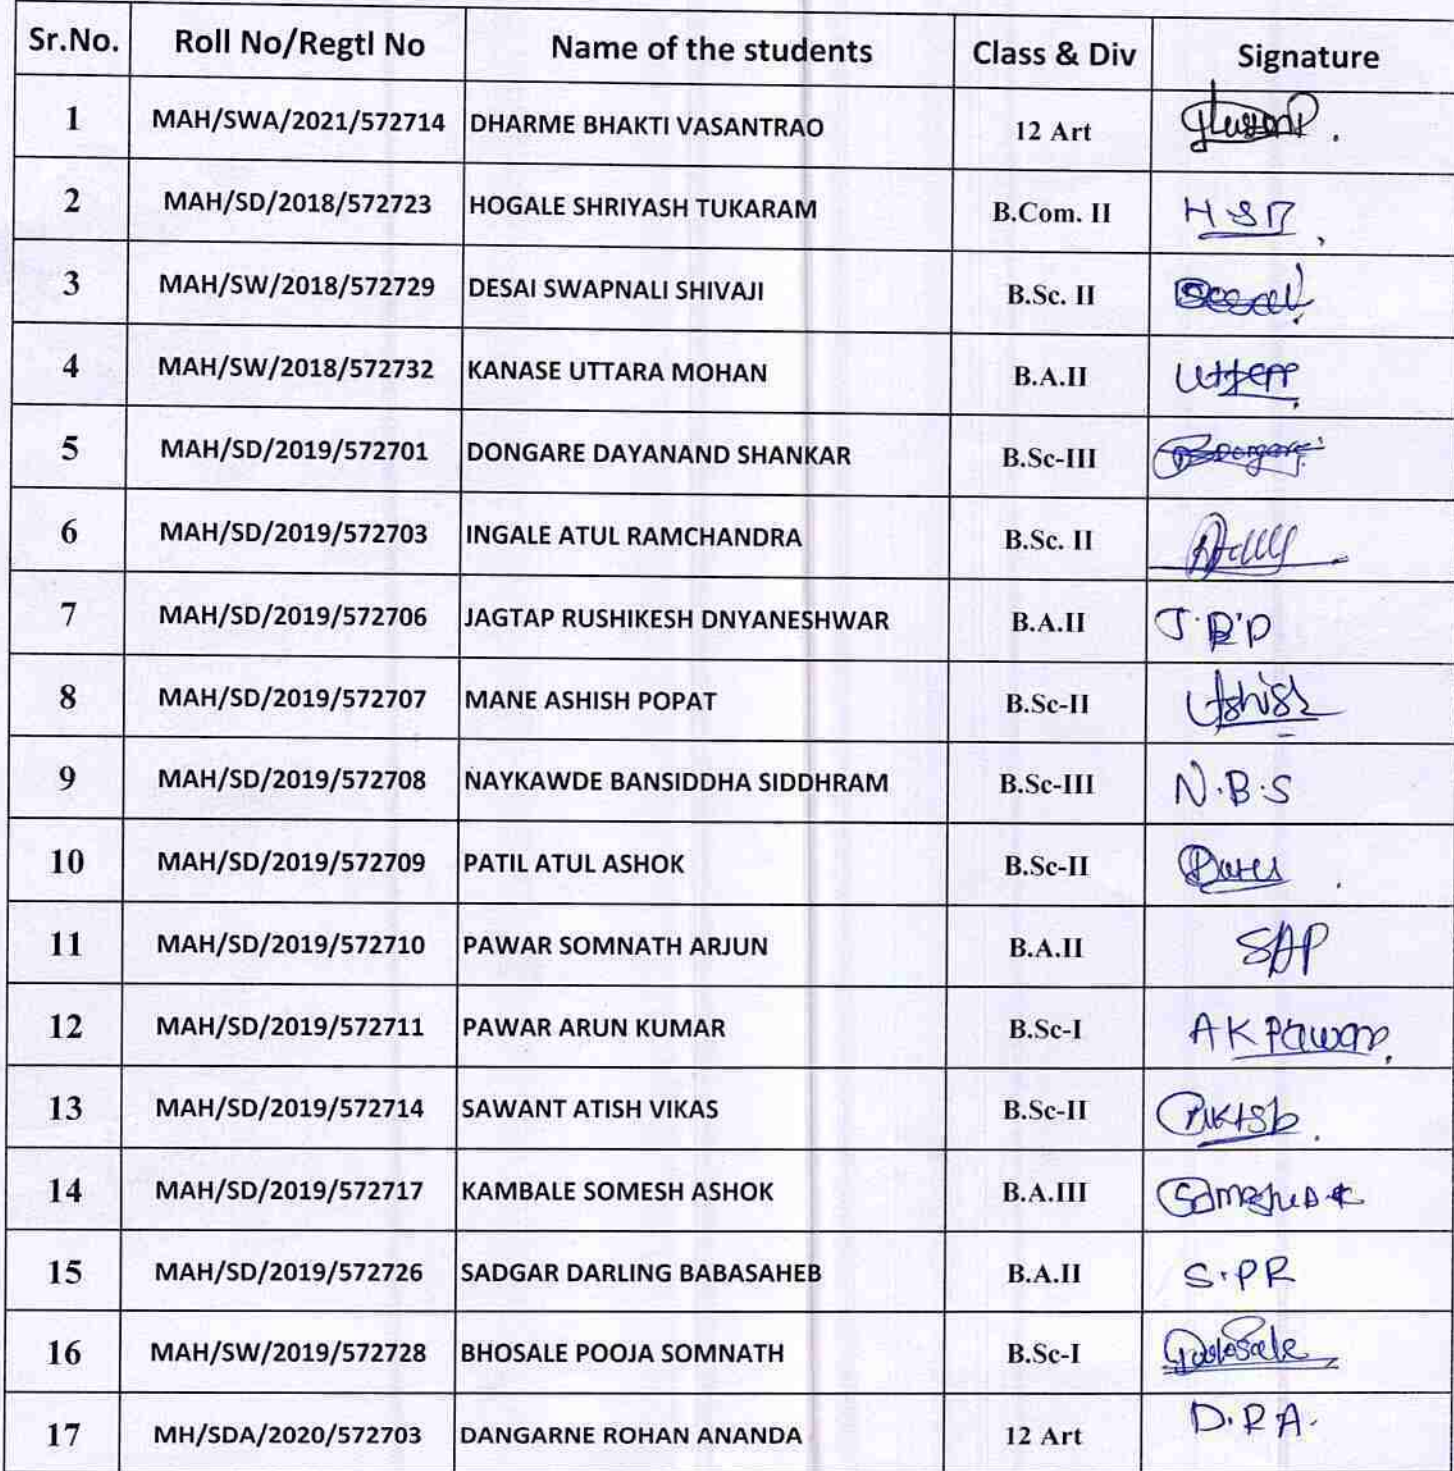 Sr.No. Roll No/Regtl No Name of the students Class & Div Signature
1 MAH/SWA/2021/572714 DHARME BHAKTI VASANTRAO 12 Art
2 MAH/SD/2018/572723 HOGALE SHRIYASH TUKARAM B.Com. II
3 MAH/SW/2018/572729 DESAI SWAPNALI SHIVAJI B.Sc. II
4 MAH/SW/2018/572732 KANASE UTTARA MOHAN B.A.II
5 MAH/SD/2019/572701 DONGARE DAYANAND SHANKAR B.Sc-III
6 MAH/SD/2019/572703 INGALE ATUL RAMCHANDRA B.Sc. II
7 MAH/SD/2019/572706 JAGTAP RUSHIKESH DNYANESHWAR B.A.II
8 MAH/SD/2019/572707 MANE ASHISH POPAT B.Sc-II
9 MAH/SD/2019/572708 NAYKAWDE BANSIDDHA SIDDHRAM B.Sc-III N.B.S
10 MAH/SD/2019/572709 PATIL ATUL ASHOK B.Sc-II
11 MAH/SD/2019/572710 PAWAR SOMNATH ARJUN B.A.II SAP
12 MAH/SD/2019/572711 PAWAR ARUN KUMAR B.Sc-I AKPawar
13 MAH/SD/2019/572714 SAWANT ATISH VIKAS B.Sc-II
14 MAH/SD/2019/572717 KAMBALE SOMESH ASHOK B.A.III
15 MAH/SD/2019/572726 SADGAR DARLING BABASAHEB B.A.II S.PR
16 MAH/SW/2019/572728 BHOSALE POOJA SOMNATH B.Sc-I
17 MH/SDA/2020/572703 DANGARNE ROHAN ANANDA 12 Art D.R.A.